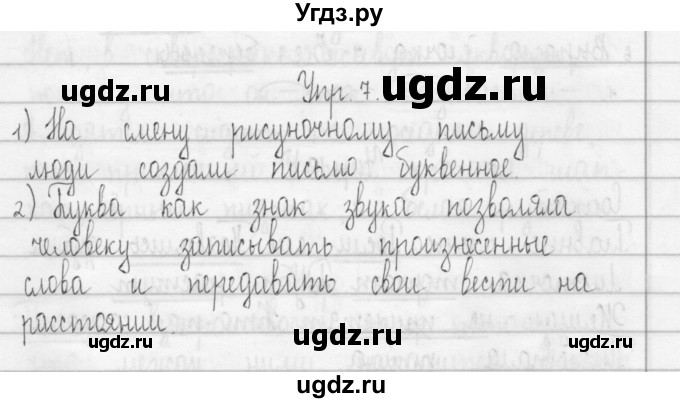 Угдз.ру
ugdz.ru ugdz.ru
Упр. 7.
1) На смену рисуночному письму
люди создали письмо буквенное
ugdz.ru ugdz.ru
2) Буква как знак звука позволяла
человеку записывать произнесенные
ugdz.ru ugdz.ru
слова и передавать свои вести на
расстоянии
ugdz.ru ugdz.ru
ugdz.ru